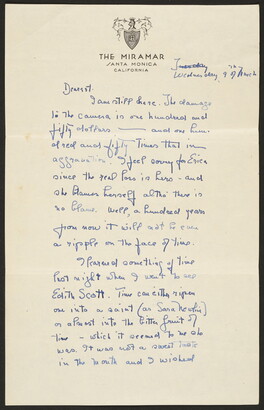 THE MIRAMAR
SANTA MONICA
CALIFORNIA
Tuesday
Wednesday, 9 of March
Dearest:
I am still here. The damage
to the camera is one hundred and
fifty dollars — and one hun-
dred and fifty times that in
aggravation. I feel sorry for Erica
since the real loss is hers - and
she blames herself altho there is
no blame. Well, a hundred years
from now it will not be even
a ripple on the face of time.
I learned something of time
last night when I went to see
Edith Scott. Time can either ripen
one into a saint (as Sara
or almost into the bitter fruit of
time - which it seemed to me she
was. It was not a sweet taste
in the mouth and I wished